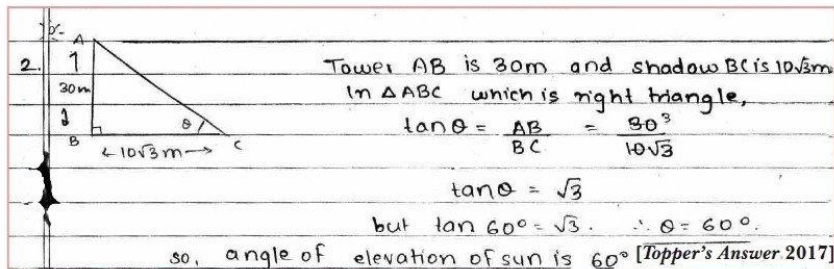 A
2.
30m
B
←10√3m→
C
θ
Tower AB is 30m and shadow BC is 10√3m
In △ABC which is right triangle,
tanθ = AB/BC = 30³/10√3
tanθ = √3
but tan 60° = √3. ∴ θ = 60°.
so, angle of elevation of sun is 60° [Topper's Answer 2017]